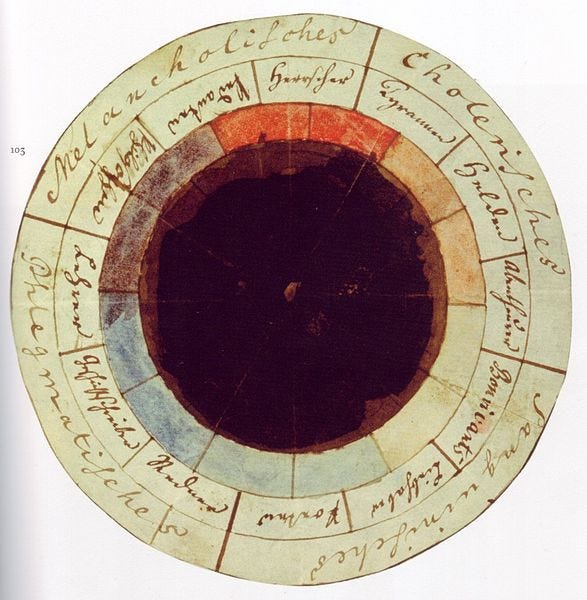 103
Melancholisches
Cholerisches
Sanguinisches
Phlegmatisches
Herrscher
Tyrannen
Helden
Abentheurer
Bonvivants
Liebhaber
Poeten
Redner
Geschichtschreiber
Lehrer
Philosophen
Pedanten